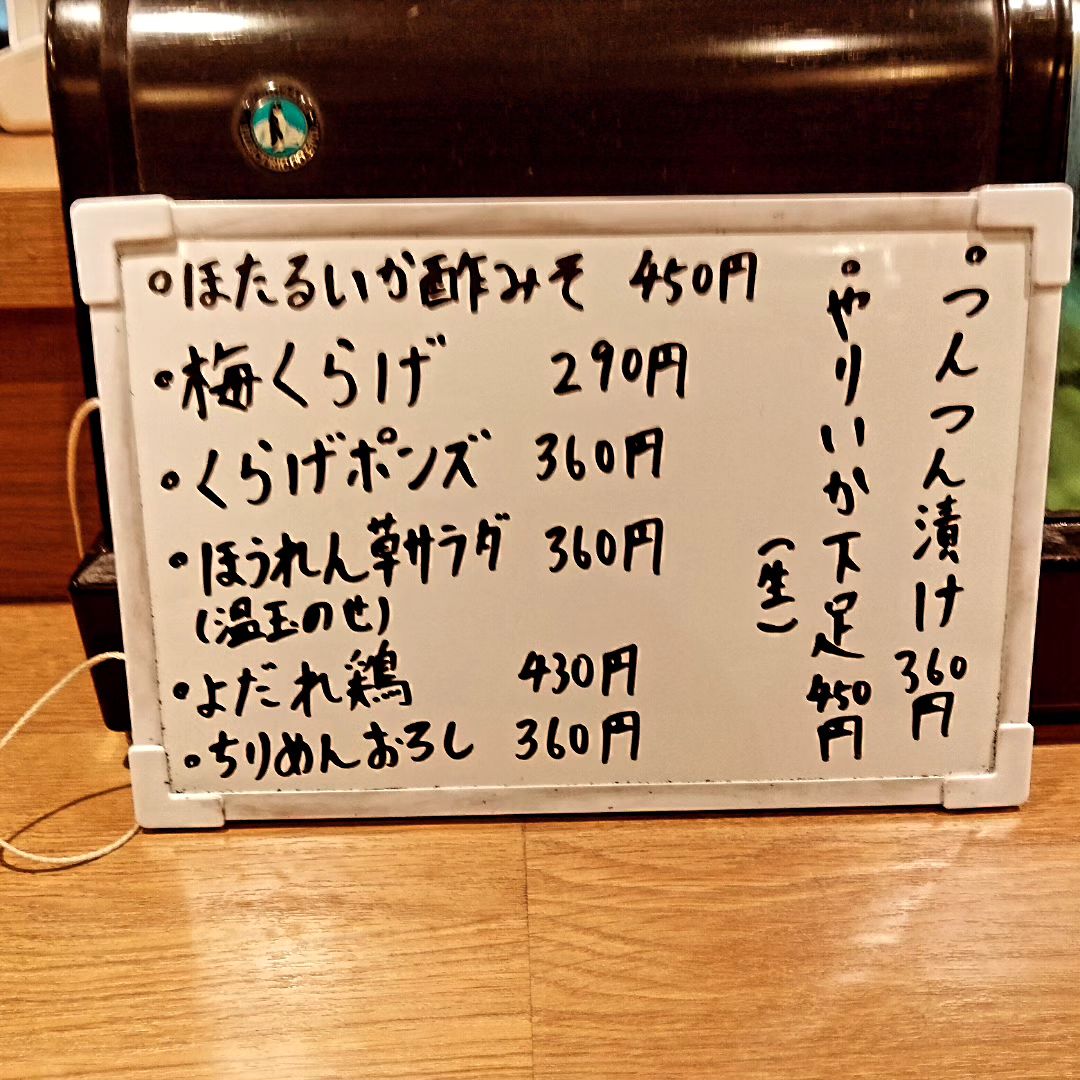 ・ほたるいか酢みそ 450円
・梅くらげ 290円
・くらげポンズ 360円
・ほうれん草サラダ 360円
(温玉のせ)
・よだれ鶏 430円
・ちりめんおろし 360円
・つんつん漬け 360円
・やりいか下足 450円
(生)